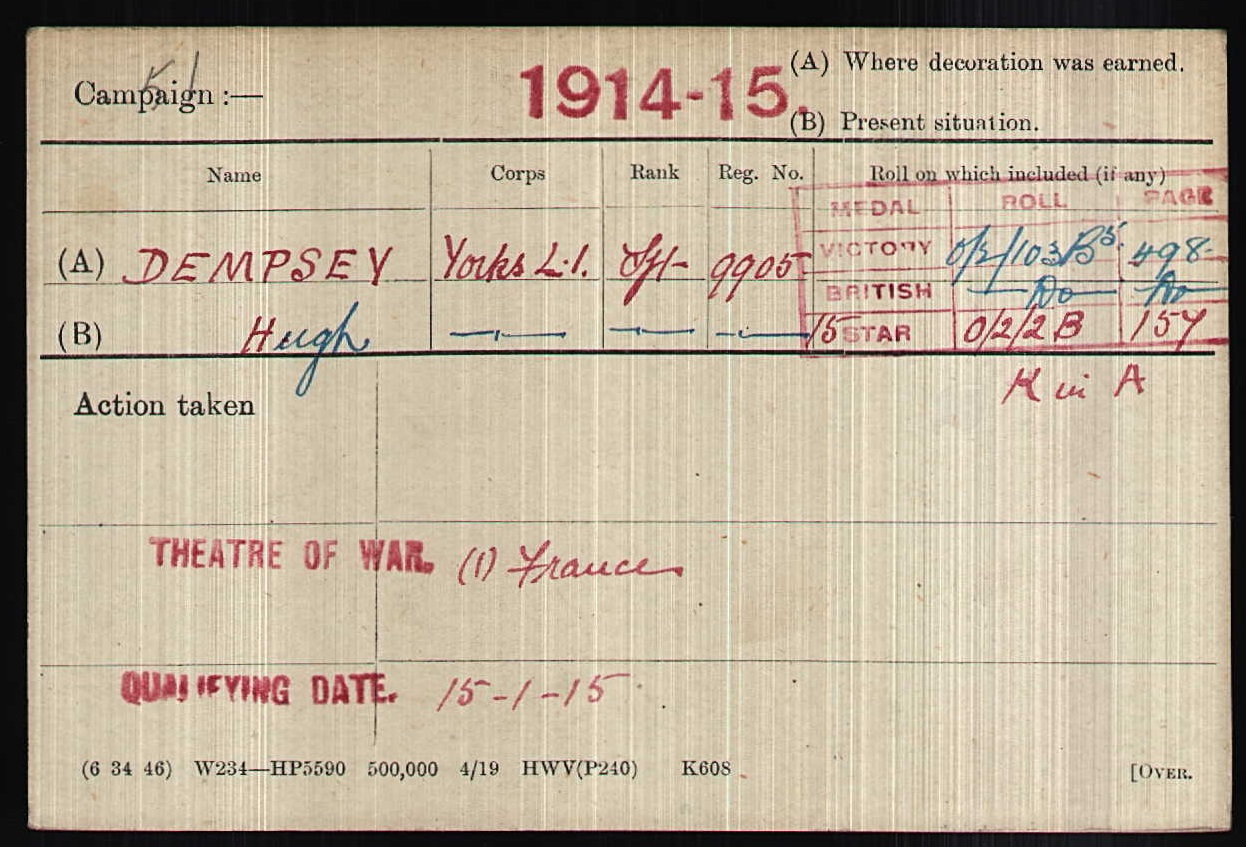 K1
Campaign :— 1914-15. (A) Where decoration was earned.
(B) Present situation.
Name Corps Rank Reg. No. Roll on which included (if any)
MEDAL ROLL PAGE
(A) DEMPSEY Yorks L.I. 9905 VICTORY O/2/103B5. 498-
BRITISH —Do— Do
(B) Hugh —"— —"— —"— 15 STAR O/2/2B 157
K in A
Action taken
THEATRE OF WAR. (1) France
QUALIFYING DATE. 15-1-15
(6 34 46) W234—HP5590 500,000 4/19 HWV(P240) K608 [OVER.